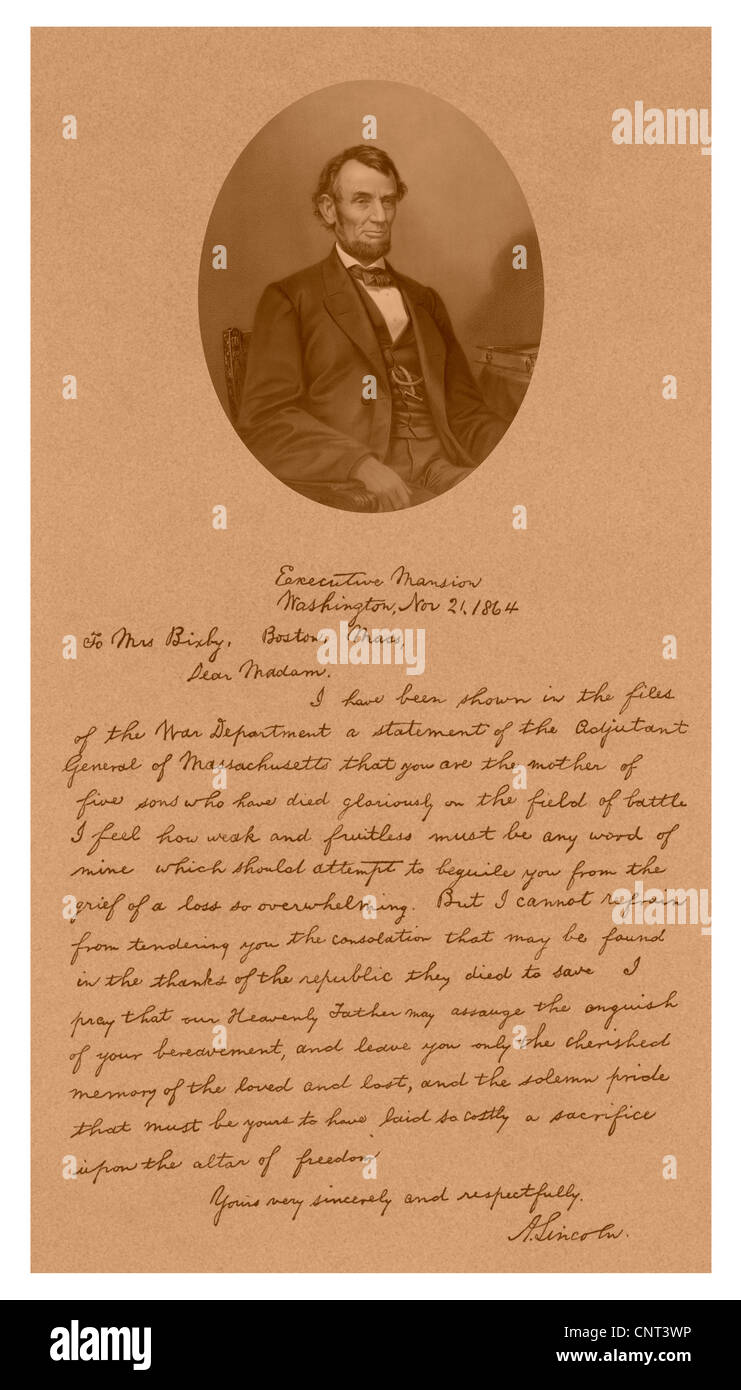 Executive Mansion
Washington, Nov 21, 1864
To Mrs Bixby, Boston, Mass,
Dear Madam.
I have been shown in the files
of the War Department a statement of the Adjutant
General of Massachusetts that you are the mother of
five sons who have died gloriously on the field of battle
I feel how weak and fruitless must be any word of
mine which should attempt to beguile you from the
grief of a loss so overwhelming. But I cannot refrain
from tendering you the consolation that may be found
in the thanks of the republic they died to save I
pray that our Heavenly Father may assauge the anguish
of your bereavement, and leave you only the cherished
memory of the loved and lost, and the solemn pride
that must be yours to have laid so costly a sacrifice
upon the altar of freedom
Yours very sincerely and respectfully.
A. Lincoln.
alamy
alamy
a alamy
Image ID: CNT3WP
www.alamy.com